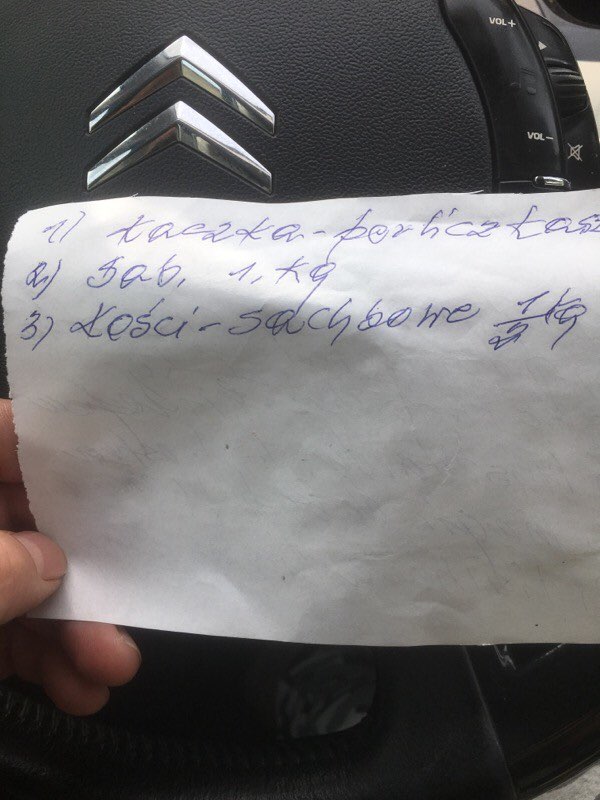 VOL+
VOL-
1) kaczka - perliczka
2) Sab, 1, kg
3) kości - schabowe 1/2 kg